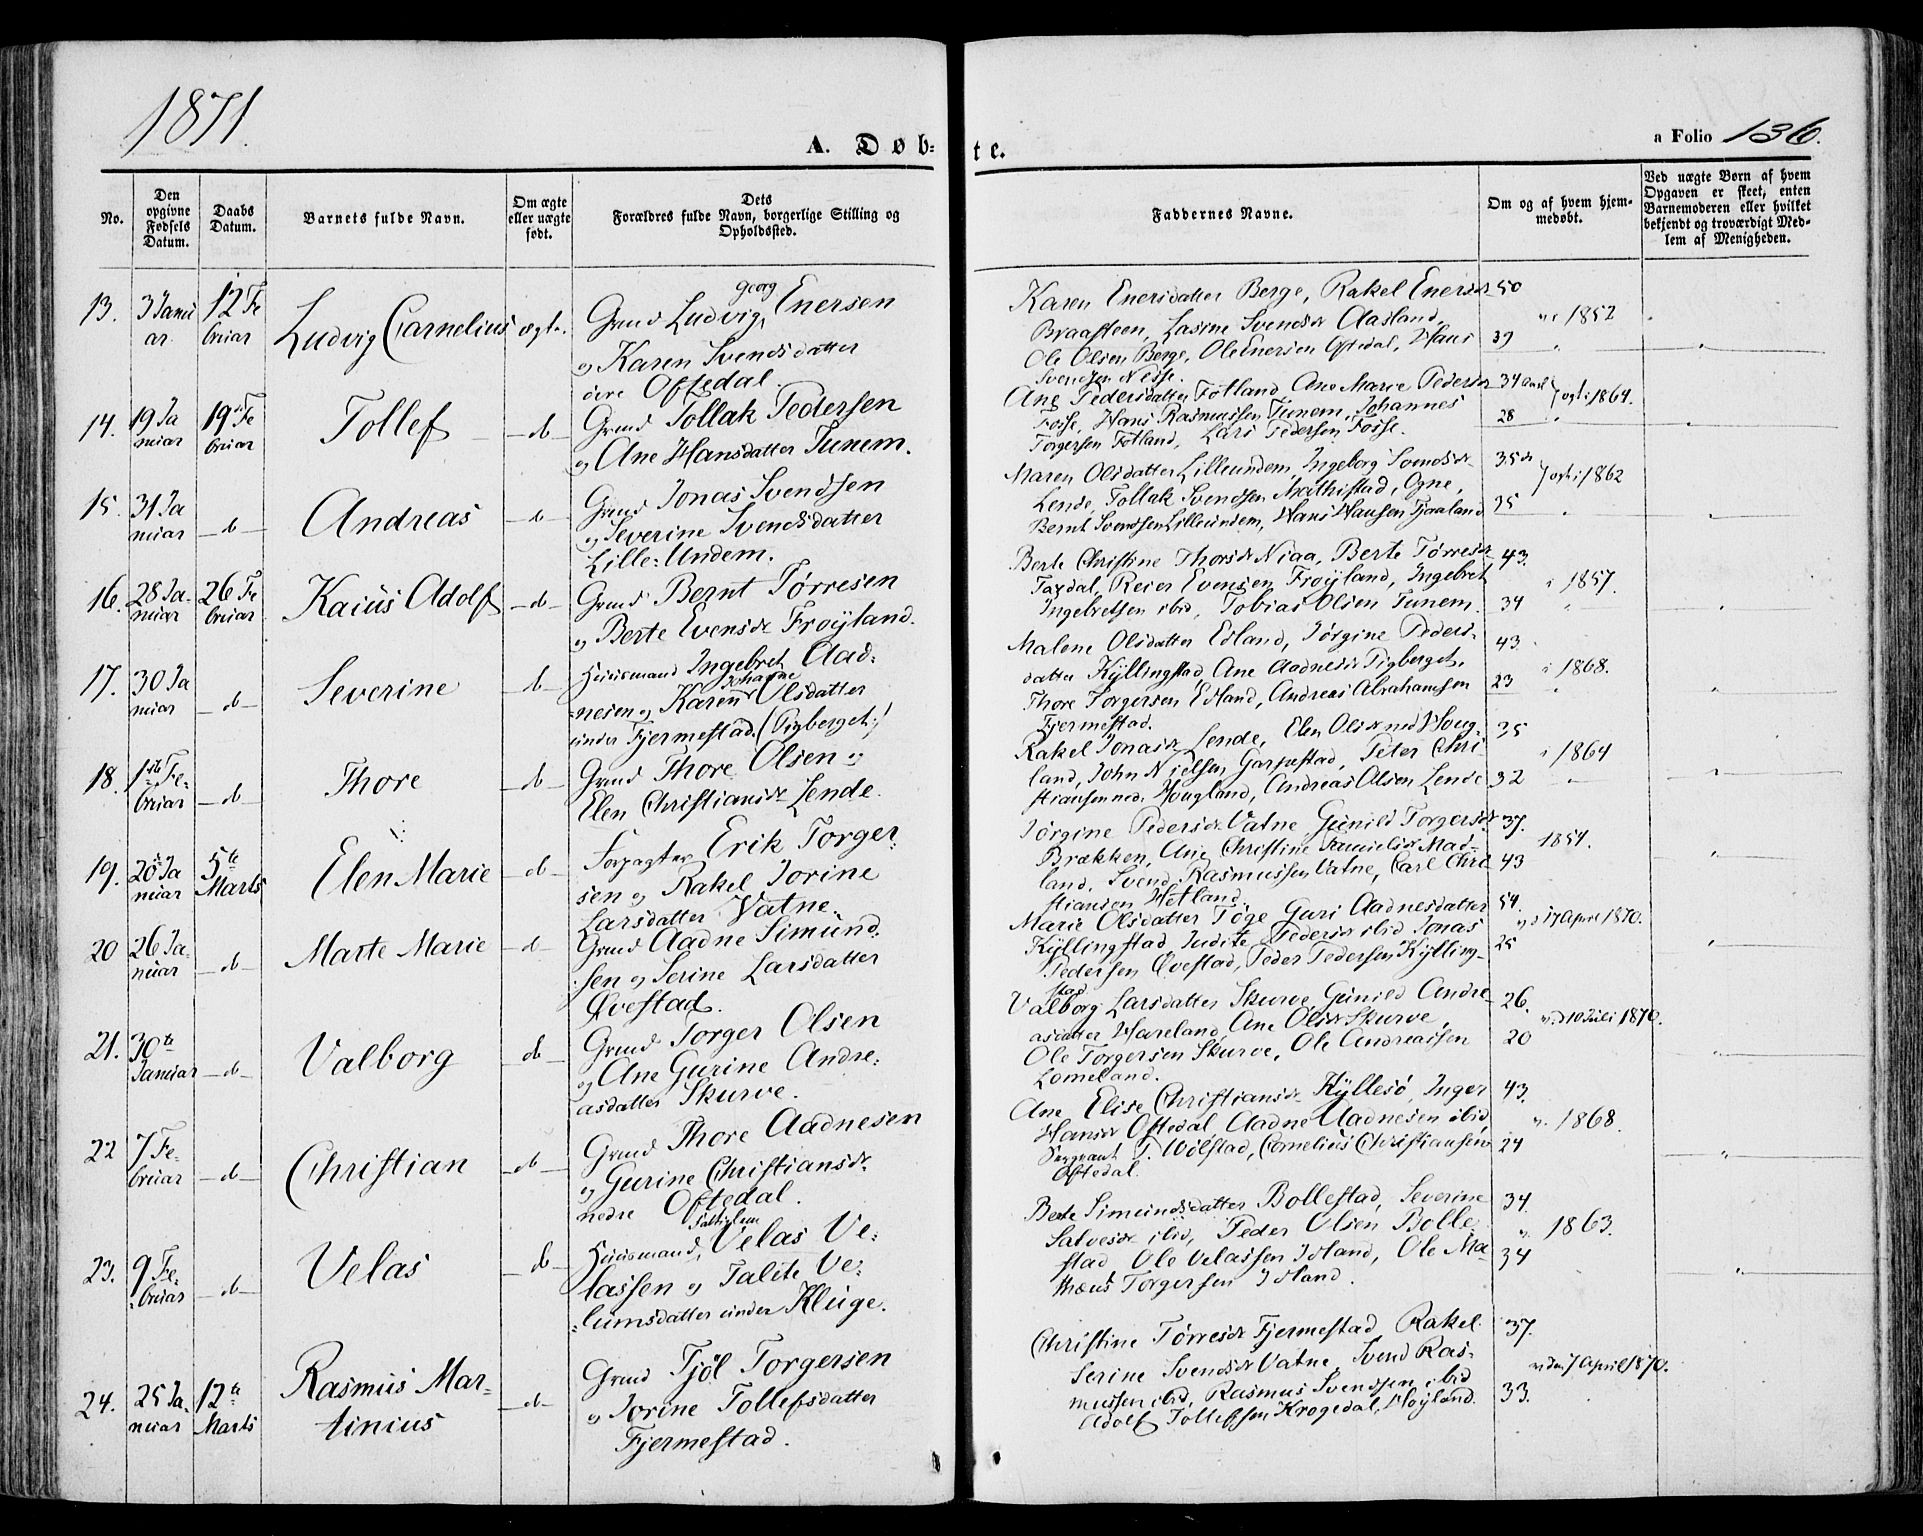 1871.
A. Døb=
te.
a Folio 136.
No.
Den opgivne Fødsels Datum.
Daabs Datum.
Barnets fulde Navn.
Om ægte eller uægte født.
Dets Forældres fulde Navn, borgerlige Stilling og Opholdssted.
Faddernes Navne.
Om og af hvem hjemmedøbt.
Ved uægte Børn af hvem Opgaven er skeet, enten Barnemoderen eller hvilket bekjendt og troværdigt Medlem af Menigheden.
13. 3 Janu
ar
12 Fe
bruar
Ludvig Cornelius
ægte.
Grmd Ludvig Georg Enersen
og Karen Svendsdatter
Oftedal.
Karen Enersdatter Berge, Rakel Enersdr
Braasteen, Svendsdr Aasland,
Ole Olsen Berge, Ole Enersen Oftedal, Hans
Svendsen Nesse.
50
39
1852
14. 19 Ja
nuar
19 Fe
bruar
Tollef
do
Grmd Tollak Pedersen
og Ane Hansdatter Tunem.
Ane Pedersdatter Fotland, Ane Marie Pedersdr
Fosse, Hans Rasmussen Tunem, Johannes
Torgersen Fotland, Lars Pedersen Fosse.
34
28
1864.
15. 31 Ja
nuar
do
Andreas
do
Grmd Jonas Svendsen
og Severine Svendsdatter
Lille=Undem.
Maren Olsdatter Lilleundem, Ingeborg Svendsdr
Lende, Tollak Svendsen Mathistad, Ogne,
Bernt Svendsen Lilleundem, Hans Hansen Tjaaland
35
25
1862
16. 28 Ja-
nuar
26 Fe
bruar
Kaius Adolf
do
Grmd Bernt Tørresen
og Berte Evensdr Frøyland.
Berte Christine Thorsdr Niaa, Berte Tørresdr
Taxdal, Reier Evensen Frøyland, Ingebret
Ingebretsen ibid, Tobias Olsen Tunem.
43.
34
1857.
17. 30 Ja
nuar
do
Severine
do
Huusmand Ingebret Aad=
nesen og Karen Johanne Olsdatter
under Fjermestad (Pigberget:)
Malene Olsdatter Edland, Jørgine Peders-
datter Kyllingstad, Ane Aadnesdr Pigberget,
Thore Torgersen Edland, Andreas Abrahamsen
Fjermestad.
43
23
1868.
18. 1ste Fe=
bruar
do
Thore
do
Grmd Thore Olsen og
Elen Christiansdr Lende.
Rakel Jonasdr Lende, Elen Olsdr ned Houg-
land, John Nielsen Garpestad, Peter Chri
stiansen ned. Hougland, Andreas Olsen Lende
35
32
1864
19. 20 Ja
nuar
5te
Marts
Elen Marie
do
Forpagter Erik Torger=
sen og Rakel Jorine
Larsdatter Vatne.
Jørgine Pedersdr Vatne, Gunild Torgersdr
Brækken, Ane Christine Samuelsdr Mad-
land, Svend Rasmussen Vatne, Carl Chri
stiansen Hetland.
37.
43
1854.
20 26 Ja-
nuar
do
Marte Marie
do
Grmd Aadne Simund=
sen og Serine Larsdatter
Qvestad.
Marie Olsdatter Tøge, Guri Aadnesdatter
Kyllingstad, Judite Pedersdr ibid, Jonas
Pedersen Qvestad, Peder Pedersen Kylling-
stad
54.
25
17 April 1870.
21. 30te
Januar
do
Valborg
do
Grmd Torger Olsen
og Ane Gurine Andre=
asdatter Skurve.
Valborg Larsdatter Skurve, Gunild Andre-
asdatter Høreland, Ane Olsdr Skurve,
Ole Torgersen Skurve, Ole Andreassen
Lomeland.
26.
20
10 Juli 1870.
22 7 Fe-
bruar
do
Christian
do
Grmd Thore Aadnesen
og Gurine Christiansdr
nedre Oftedal.
Ane Elise Christiansdr Kyllesø, Inger
Hansdr Oftedal, Aadne Aadnesen ibid,
Sergeant T. Wølstad, Cornelius Christiansen
Oftedal.
43.
24
1868.
23. 9 Fe-
bruar
do
Velas
do
Huusmand, Velas Ve=
lassen og Talete Ve=
lumsdatter under Kluge.
Berte Simundsdatter Bollestad, Severine
Salvesdr ibid, Peder Olsen Bolle
stad, Ole Velassen Idland, Ole Ma
thæus Torgersen Idland.
34.
34
1863.
24. 25 Ja-
nuar
12te
Marts
Rasmus Mar-
tinius
do
Grmd Tjøl Torgersen
og Jorine Tollefsdatter
Fjermestad.
Christine Tørresdr Fjermestad, Rakel
Serine Svendsdr Vatne, Svend Ras-
mussen ibid, Rasmus Svendsen ibid
Adolf Tollefsen Krogedal, Høyland.
37.
33.
7 April 1870.